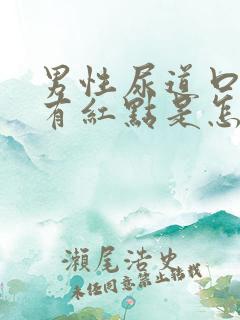 男性尿道口
有紅點是怎
瀨尾浩史
未经同意禁止转载